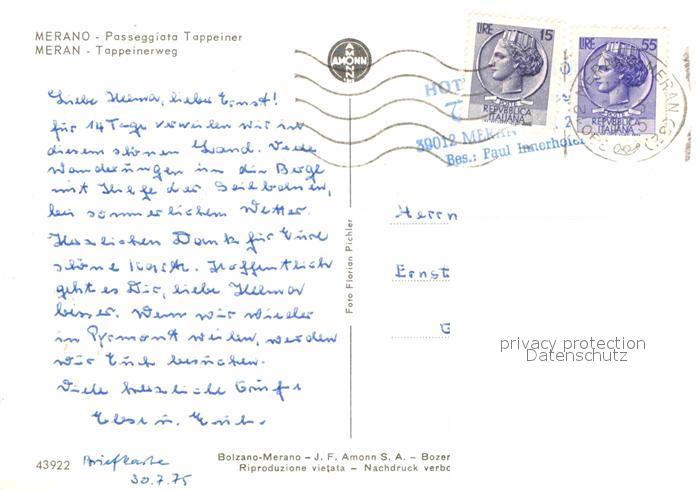 MERANO - Passeggiata Tappeiner
MERAN - Tappeinerweg
AMONN
LIRE 15
POSTE
REPVBBLICA
ITALIANA
LIRE 55
POSTE
REPVBBLICA
ITALIANA
MERAN
HOT
39012 MERAN
Bes.: Paul Innerhofer
Liebe Helma, lieber Ernst!
für 14 Tage verweilen wir in
diesem schönen Land. Viele
Wanderungen in die Berge
mit Hilfe der Seilbahnen,
bei sommerlichem Wetter.
Herzlichen Dank für Eure
schöne Karte. Hoffentlich
geht es Dir, liebe Helma
besser. Wenn wir wieder
in Pyrmont weilen, werden
wir Euch besuchen.
Viele herzliche Grüße
Else u.
Briefkarte
30.7.75
Herrn
Ernst
Foto Florian Pichler
privacy protection
Datenschutz
43922
Bolzano-Merano - J. F. Amonn S. A. - Bozen
Riproduzione vietata - Nachdruck verbo